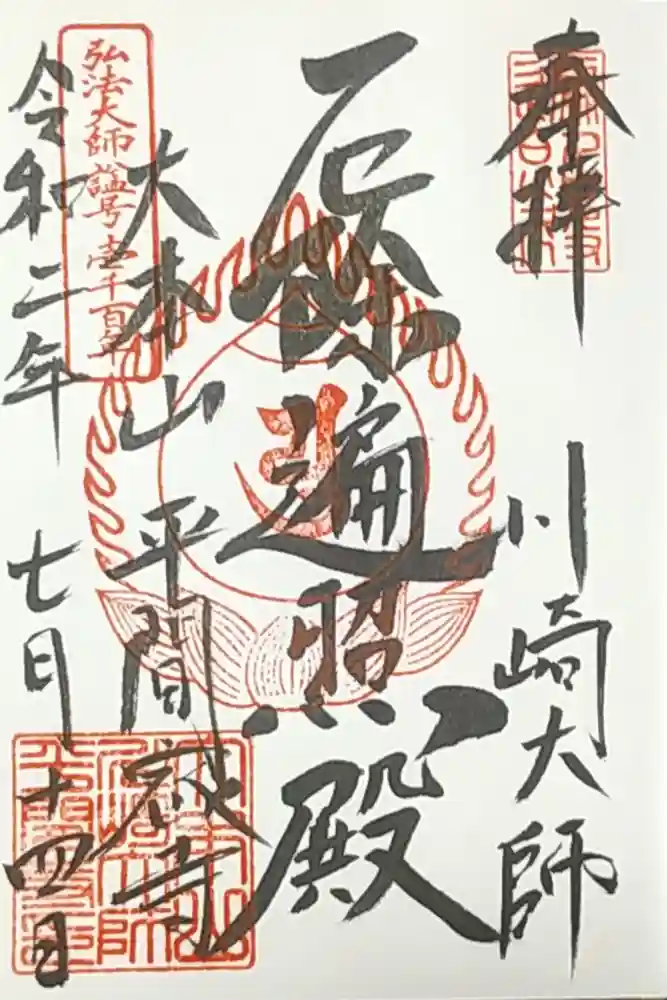 奉拝
川崎大師
厄除遍照殿
大本山平間寺
弘法大師諡号壱千百年
令和二年
七月十四日